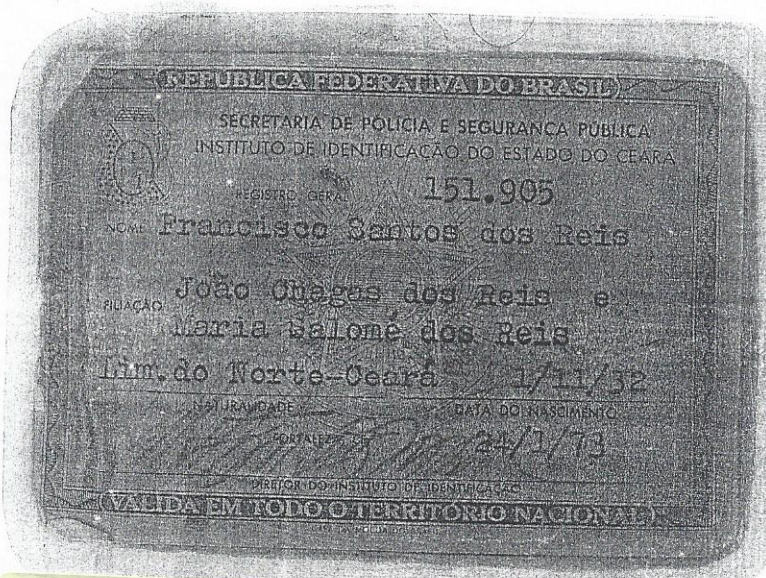 REPÚBLICA FEDERATIVA DO BRASIL
SECRETARIA DE POLÍCIA E SEGURANÇA PÚBLICA
INSTITUTO DE IDENTIFICAÇÃO DO ESTADO DO CEARÁ
REGISTRO GERAL 151.905
NOME Francisco Santos dos Reis
FILIAÇÃO João Chagas dos Reis e
Maria Salomé dos Reis
Lim.do Norte-Ceará 1/11/32
NATURALIDADE DATA DO NASCIMENTO
FORTALEZA 24/1/73
DIRETOR DO INSTITUTO DE IDENTIFICAÇÃO
VÁLIDA EM TODO O TERRITÓRIO NACIONAL